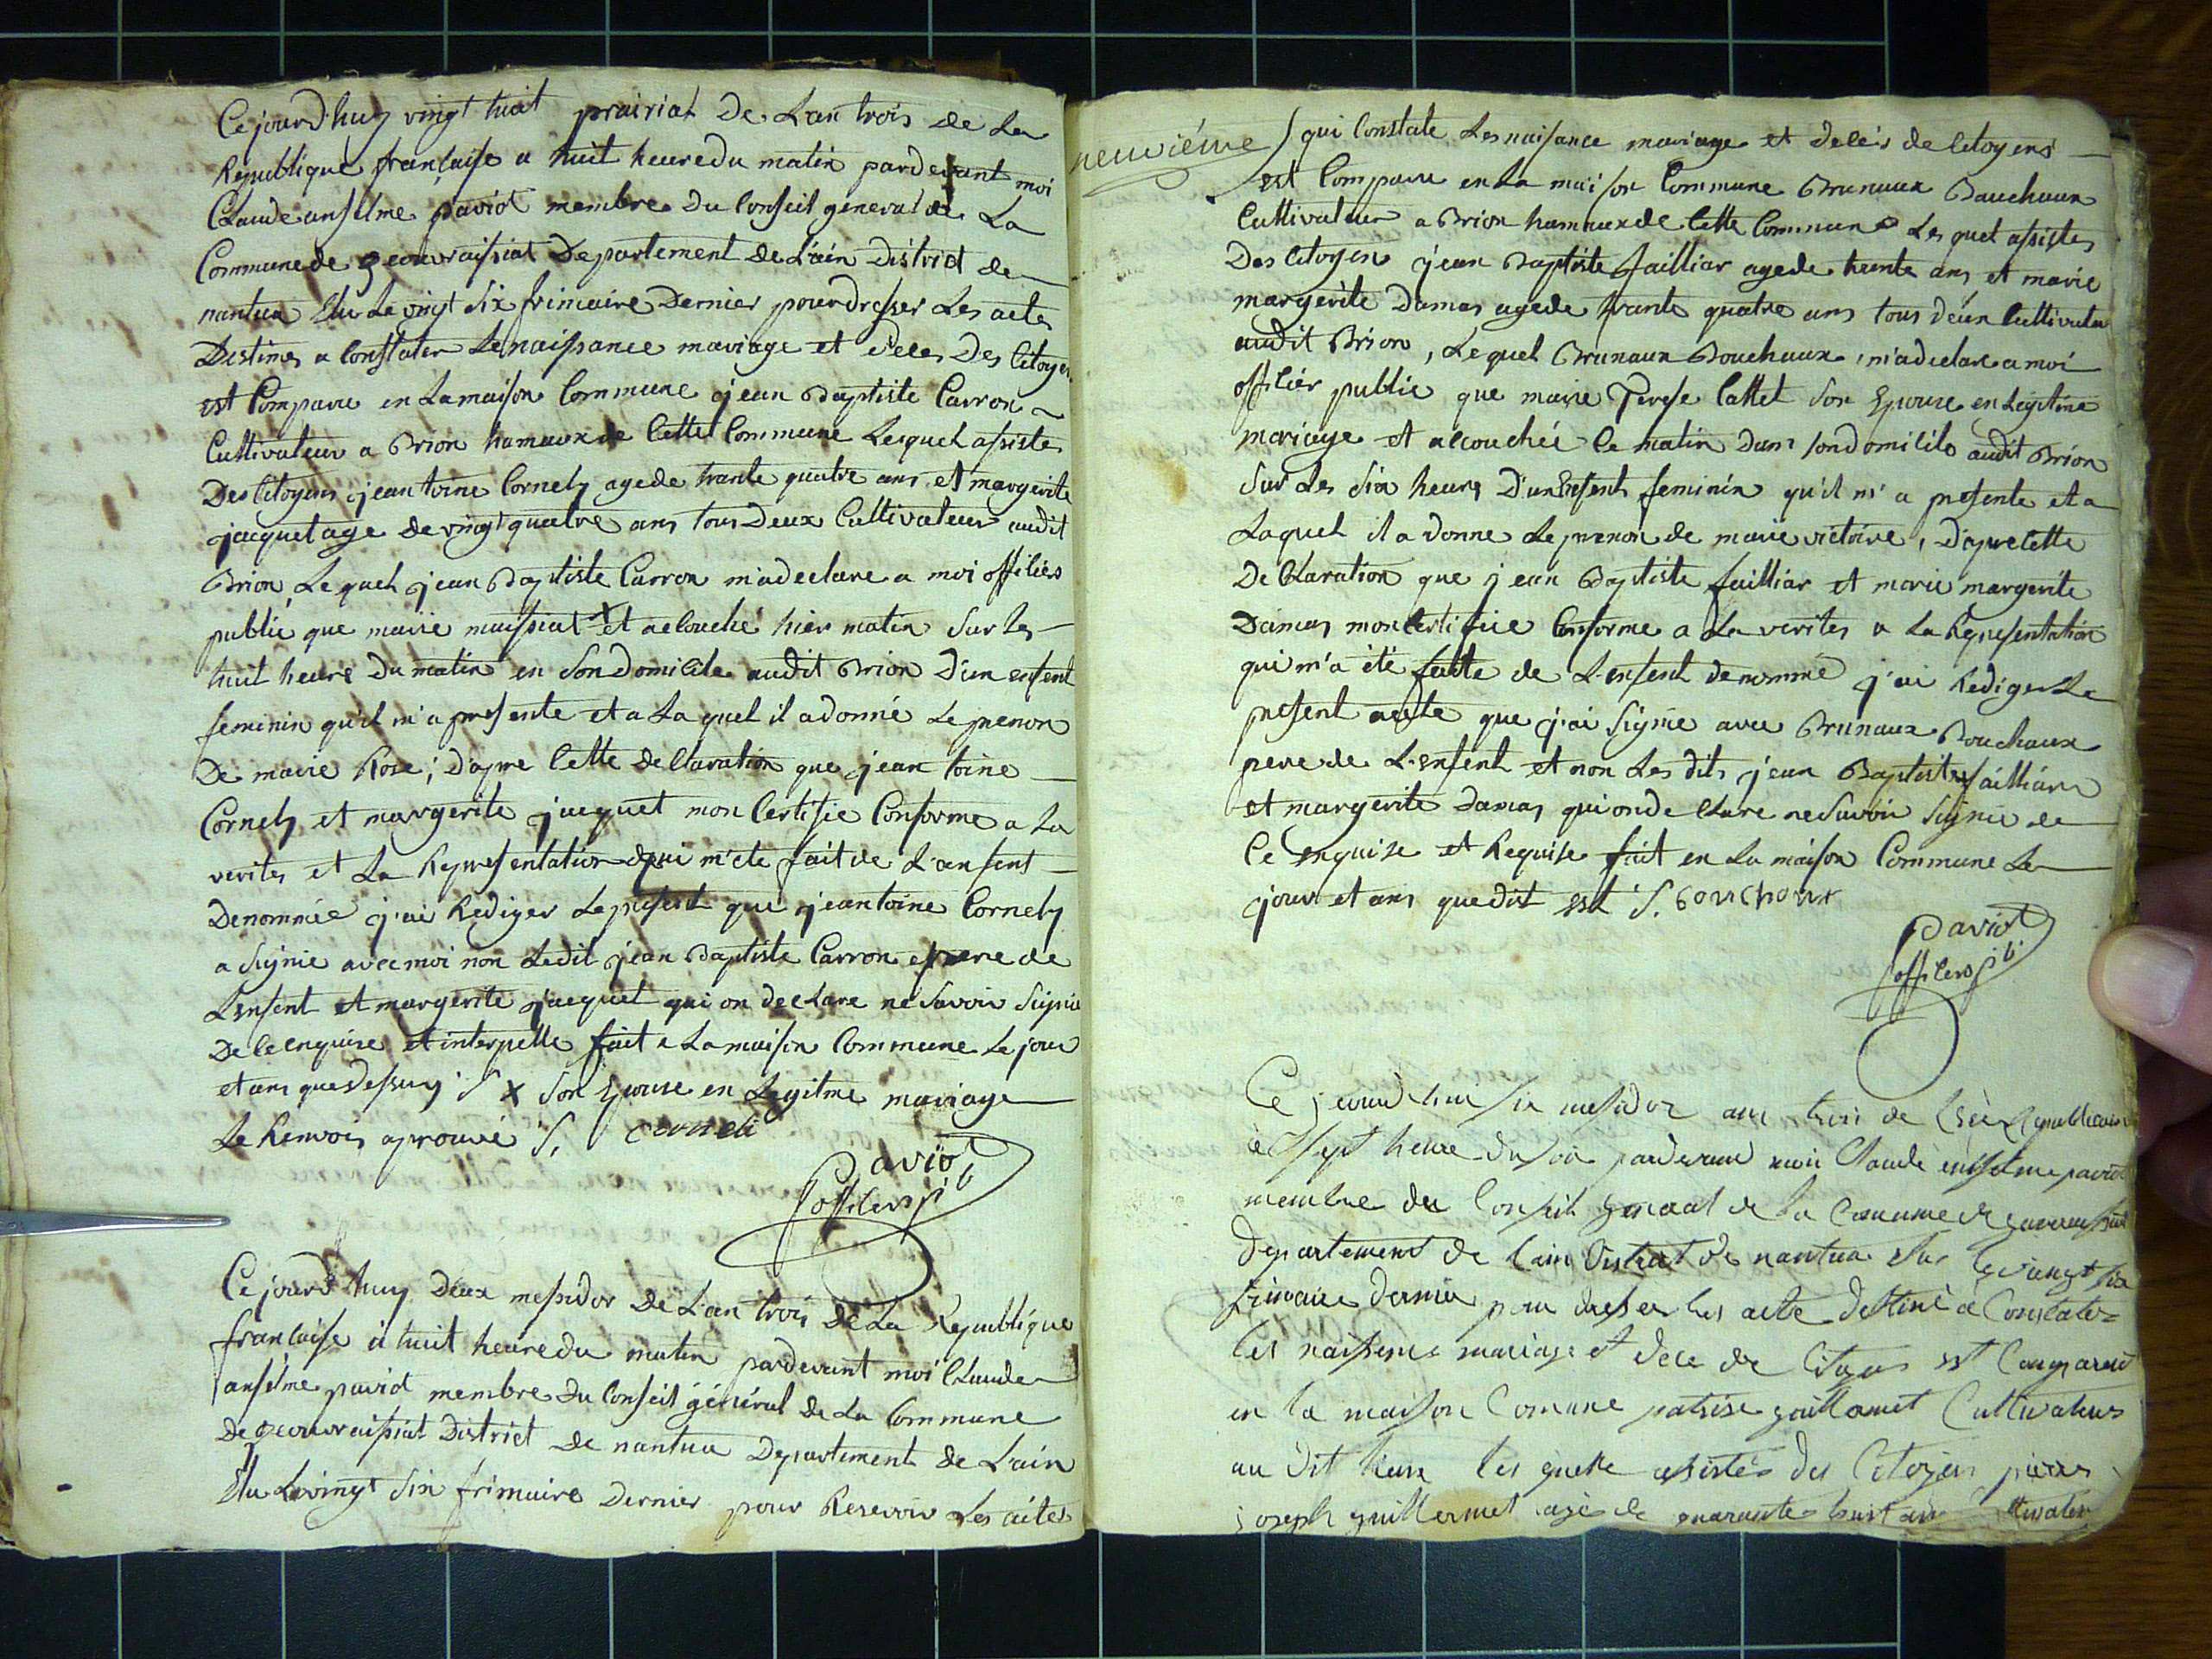 Ce jourd'huy vingt huit prairial De L'an trois de La
Republique française a huit heure du matin pardevant moi
Claude anselme paviot membre du Conseil general de La
Commune de geovraissiat Departement de L'ain District de
nantua Elu Le vingt Six frimaire Dernier pour dresser Les acte
Destines a Constater Le naissance mariage et deces Des Citoyen
est Comparu en La maison Commune jean Baptiste Carron
Cultivateur a Brion hamaux de Cette Commune Lequel assistes
Des Citoyens jeantoine Cornely age de trante quatre ans et margerite
jacquet age de vingt quatre ans tous Deux Cultivateur audit
Brion, Lequel jean Baptiste Carron m'a declare a moi officiers
public que marie maissiat X et acouché hier matin Sur Les
huit heure Du matin en Son Domicile audit Brion D'un enfent
feminin qu'il m'a presente et a La quel il a donné Le prenon
De marie Rose ; D'apre Cette declaration que jean toine
Cornely et margerite jacquet mon Certifie Conforme a La
verites et La Representation qui m'ete fait de L'anfent
Denommée j'ai Rediger Le present que jeantoine Cornely
a Signie avec moi non Ledit jean Baptiste Carron pere de
L'enfent et margerite jacquet qui on declare ne Savoir Signie
De Ce enquise et interpelle fait a La maison Commune Le jour
et ans que dessuy S X Son Epouse en Legitme mariage
Le Renvois aprouvé S, corneli
Paviot
officers pb
Ce jourd'huy Deux messidor De L'an trois De La Republique
française à huit heure du matin pardevant moi Claude
anselme paviot membre du Conseil général De La Commune
De geovraissiat District de nantua Departement de L'ain
Elu Le vingt Six frimaire Dernier pour Reservoir Les actes
neuviéme
qui Constate Les naissance mariage et decés de Citoyens
est Comparu en La maison Commune Brunaux Bauchaux
Cultivateur a Brion hamaux de Cette Commune Lequel assistes
Des Citoyen jean Baptiste failliar age de trente ans et marie
margerite Damas age de trante quatre ans tous deux Cultivateur
audit Brion, Lequel Brunaux Bouchaux, m'a declare a moi
officiér public que marie Terese Cattet Son Epouse en Legitime
mariage et acouchée Ce matin Dans son domicile audit Brion
Sur Les Six heurs D'un Enfent feminin qu'il m'a presente et a
Laquel il a Donne Le prenon de marie victoire, D'apre Cette
Declaration que jean Baptiste failliar et marie margerite
Damas mon Certifiie Conforme a La verites a La Representation
qui m'a été faitte de L'enfent denommé j'ai Rediger Le
present acte que j'ai Signie avec Brunaux Bouchaux
pere de L'enfent et non Les dits jean Baptiste failliar
et margerite Damas qui on declare ne Savoir Signie de
Ce enquise et Requise fait en La maison Commune Le
jour et ans que dit est S. bouchoux
Paviot
officers pb
Ce jourd'hui six messidor an trois de L'Ere Republicaine
à sept heure du soir pardevant moi Claude enselme paviot
membre du Conseil general de la Commune de
Departement de l'ain District de nantua elu le vingt six
frimaire dernier pour dresser les acte destiné à Constater
les naissence mariage et dece de Citoyens est Comparu
en la maison Comune patrise guillamet Cultivateur
au dit lieux les quelle assistés des Citoyens pierre
joseph guillermet agé de quarante huit ans